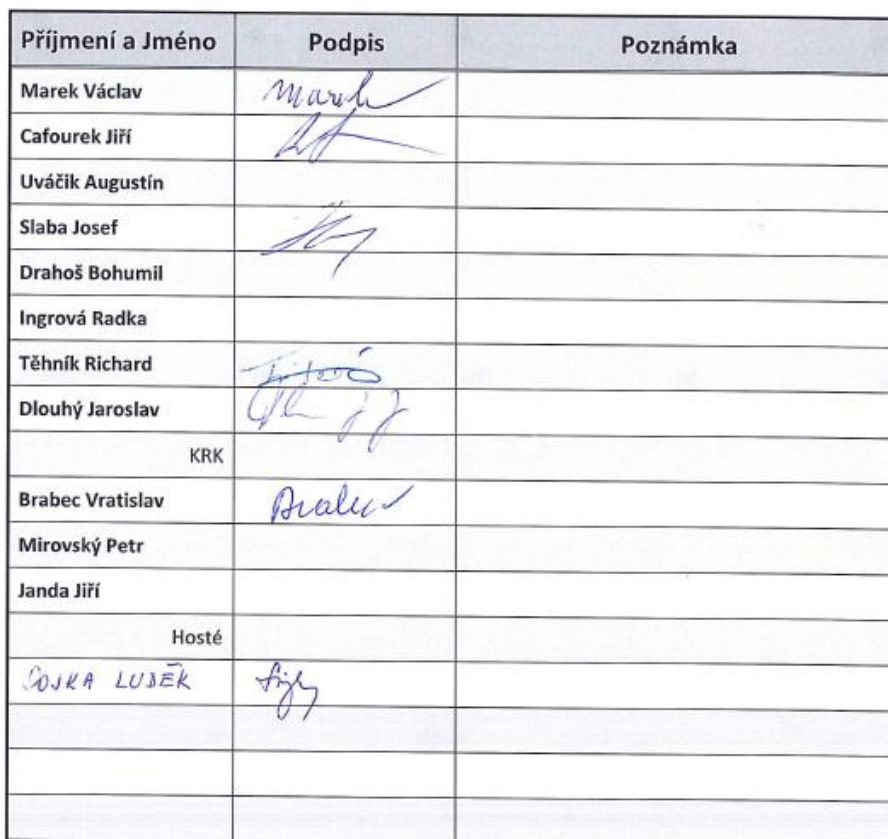 Příjmení a Jméno Podpis Poznámka
Marek Václav Marek
Cafourek Jiří
Uváčik Augustín
Slaba Josef
Drahoš Bohumil
Ingrová Radka
Těhník Richard
Dlouhý Jaroslav
KRK
Brabec Vratislav
Mirovský Petr
Janda Jiří
Hosté
SOJKA LUDĚK